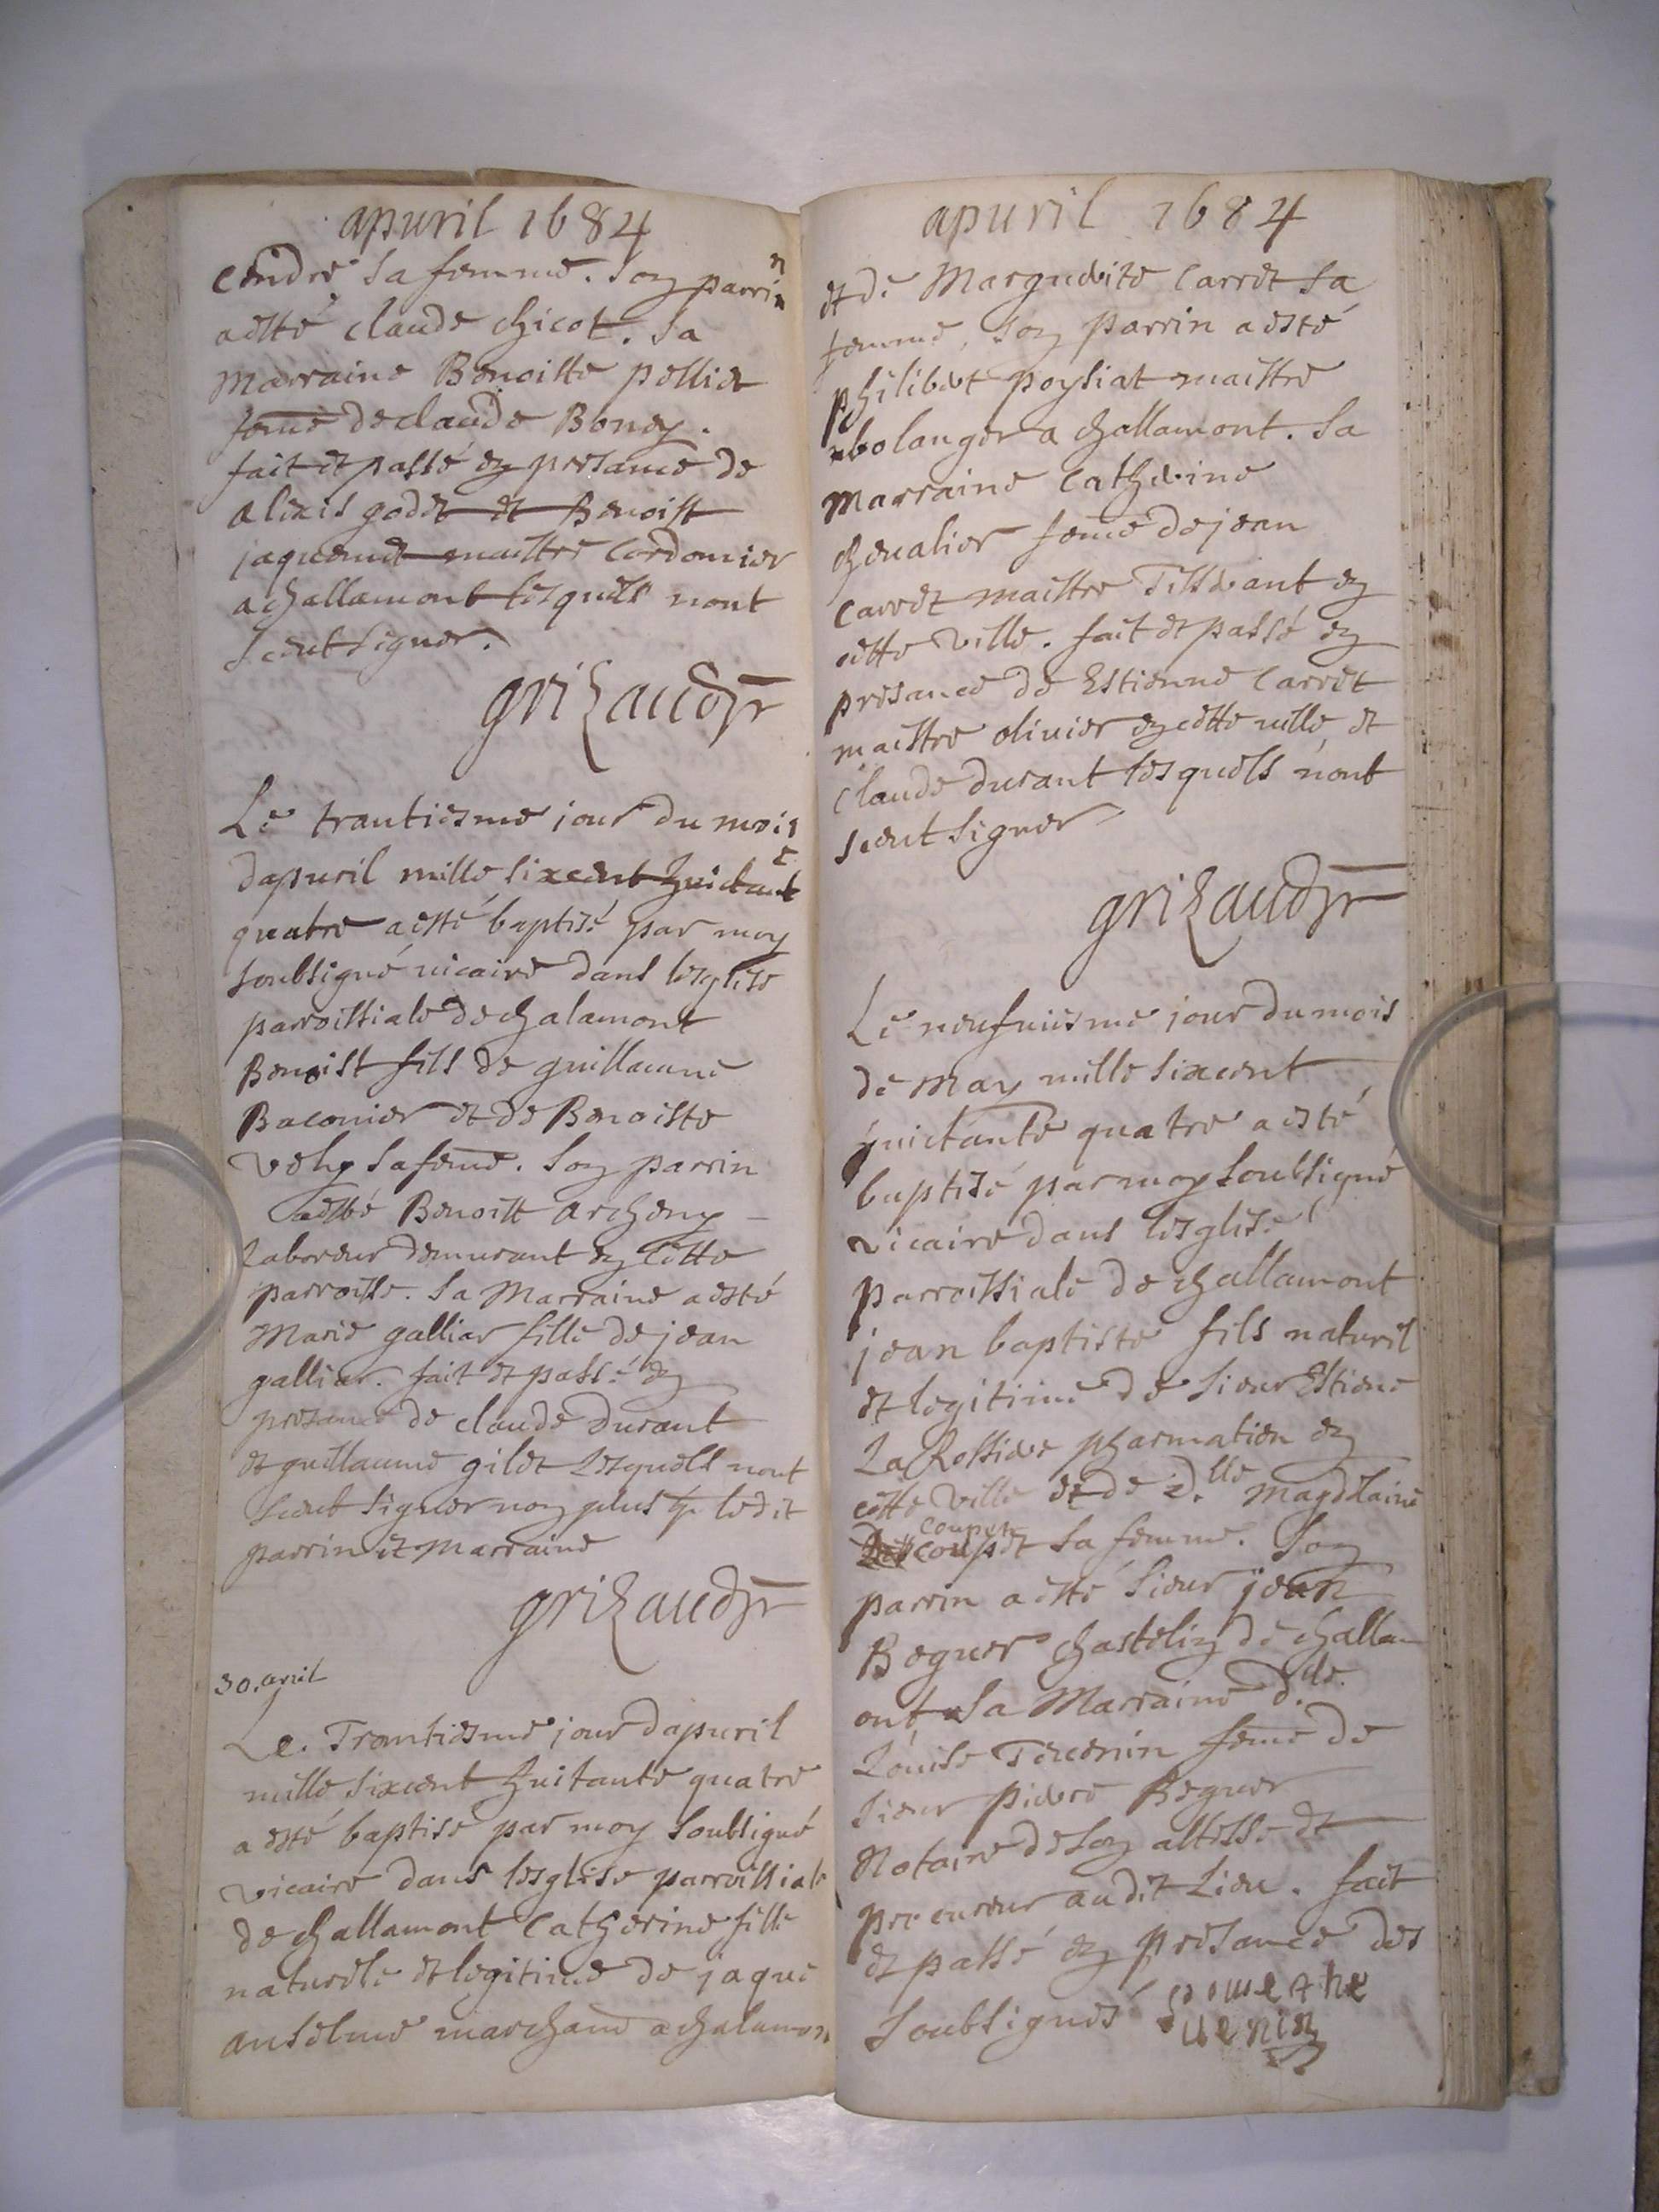 apuril 1684
cendre sa femme. son parrin
a esté claude chicot. sa
marraine Benoiste pelliet
feme de claude Boney.
fait et passé en presance de
alexis godet et Benoist
jaquemet maistre cordonier
a challamont lesquels nont
sceut signer.
grizaud pr
Le trantiesme jour du mois
dapuril mille sixcent huictante
quatre a esté baptisé par moy
soubsigné vicaire dans lesglise
parroissiale de chalamont
Benoist fils de guillaume
Baconier et de Benoiste
velly sa feme. son parrin
a esté Benoist archeny
laboreur demurant en cette
parroisse. sa Marraine a esté
Marie galliar fille de jean
galliar. fait et passé en
presance de claude durant
et guillaume gilet lesquels nont
sceut signer non plus q. ledit
parrin et marraine
grizaud pr
30. avril
Le. Trantiesme jour dapuril
mille sixcent huitante quatre
a esté baptise par moy soubsigné
vicaire dans lesglise parroissiale
de challamont Catherine fille
naturele et legitime de jaque
anselme marchand a chalamon
apuril 1684
et de Marguerite Carret sa
femme, son parrin a esté
philibert poysiat maistre
bolanger a challamont. sa
marraine Catherine
chevalier feme de jean
Carret maistre Tisserant en
cette ville. fait et passé en
presance de Estienne Carret
maistre olivier en cette ville et
claude durant lesquels nont
sceut signer
grizaud pr
Le neufuiesme jour du mois
de may mille sixcent
huictante quatre a esté
baptisé par moy soubsigné
vicaire dans lesglise
parroissiale de challamont
jean baptiste fils naturil
et legitime de sieur Estiene
La Rossiere pharmatien en
cette ville et de d.lle magdelaine
coupet
coupet sa femme. son
parrin a esté sieur jean
Beguer chastelin de challam
ont sa Marraine d.lle
Louise Tevenin feme de
sieur pierre Beguer
Notaire de son altesse et
procureur audit Lieu. fait
et passé en presance des
soubsignés Louise the
uenin